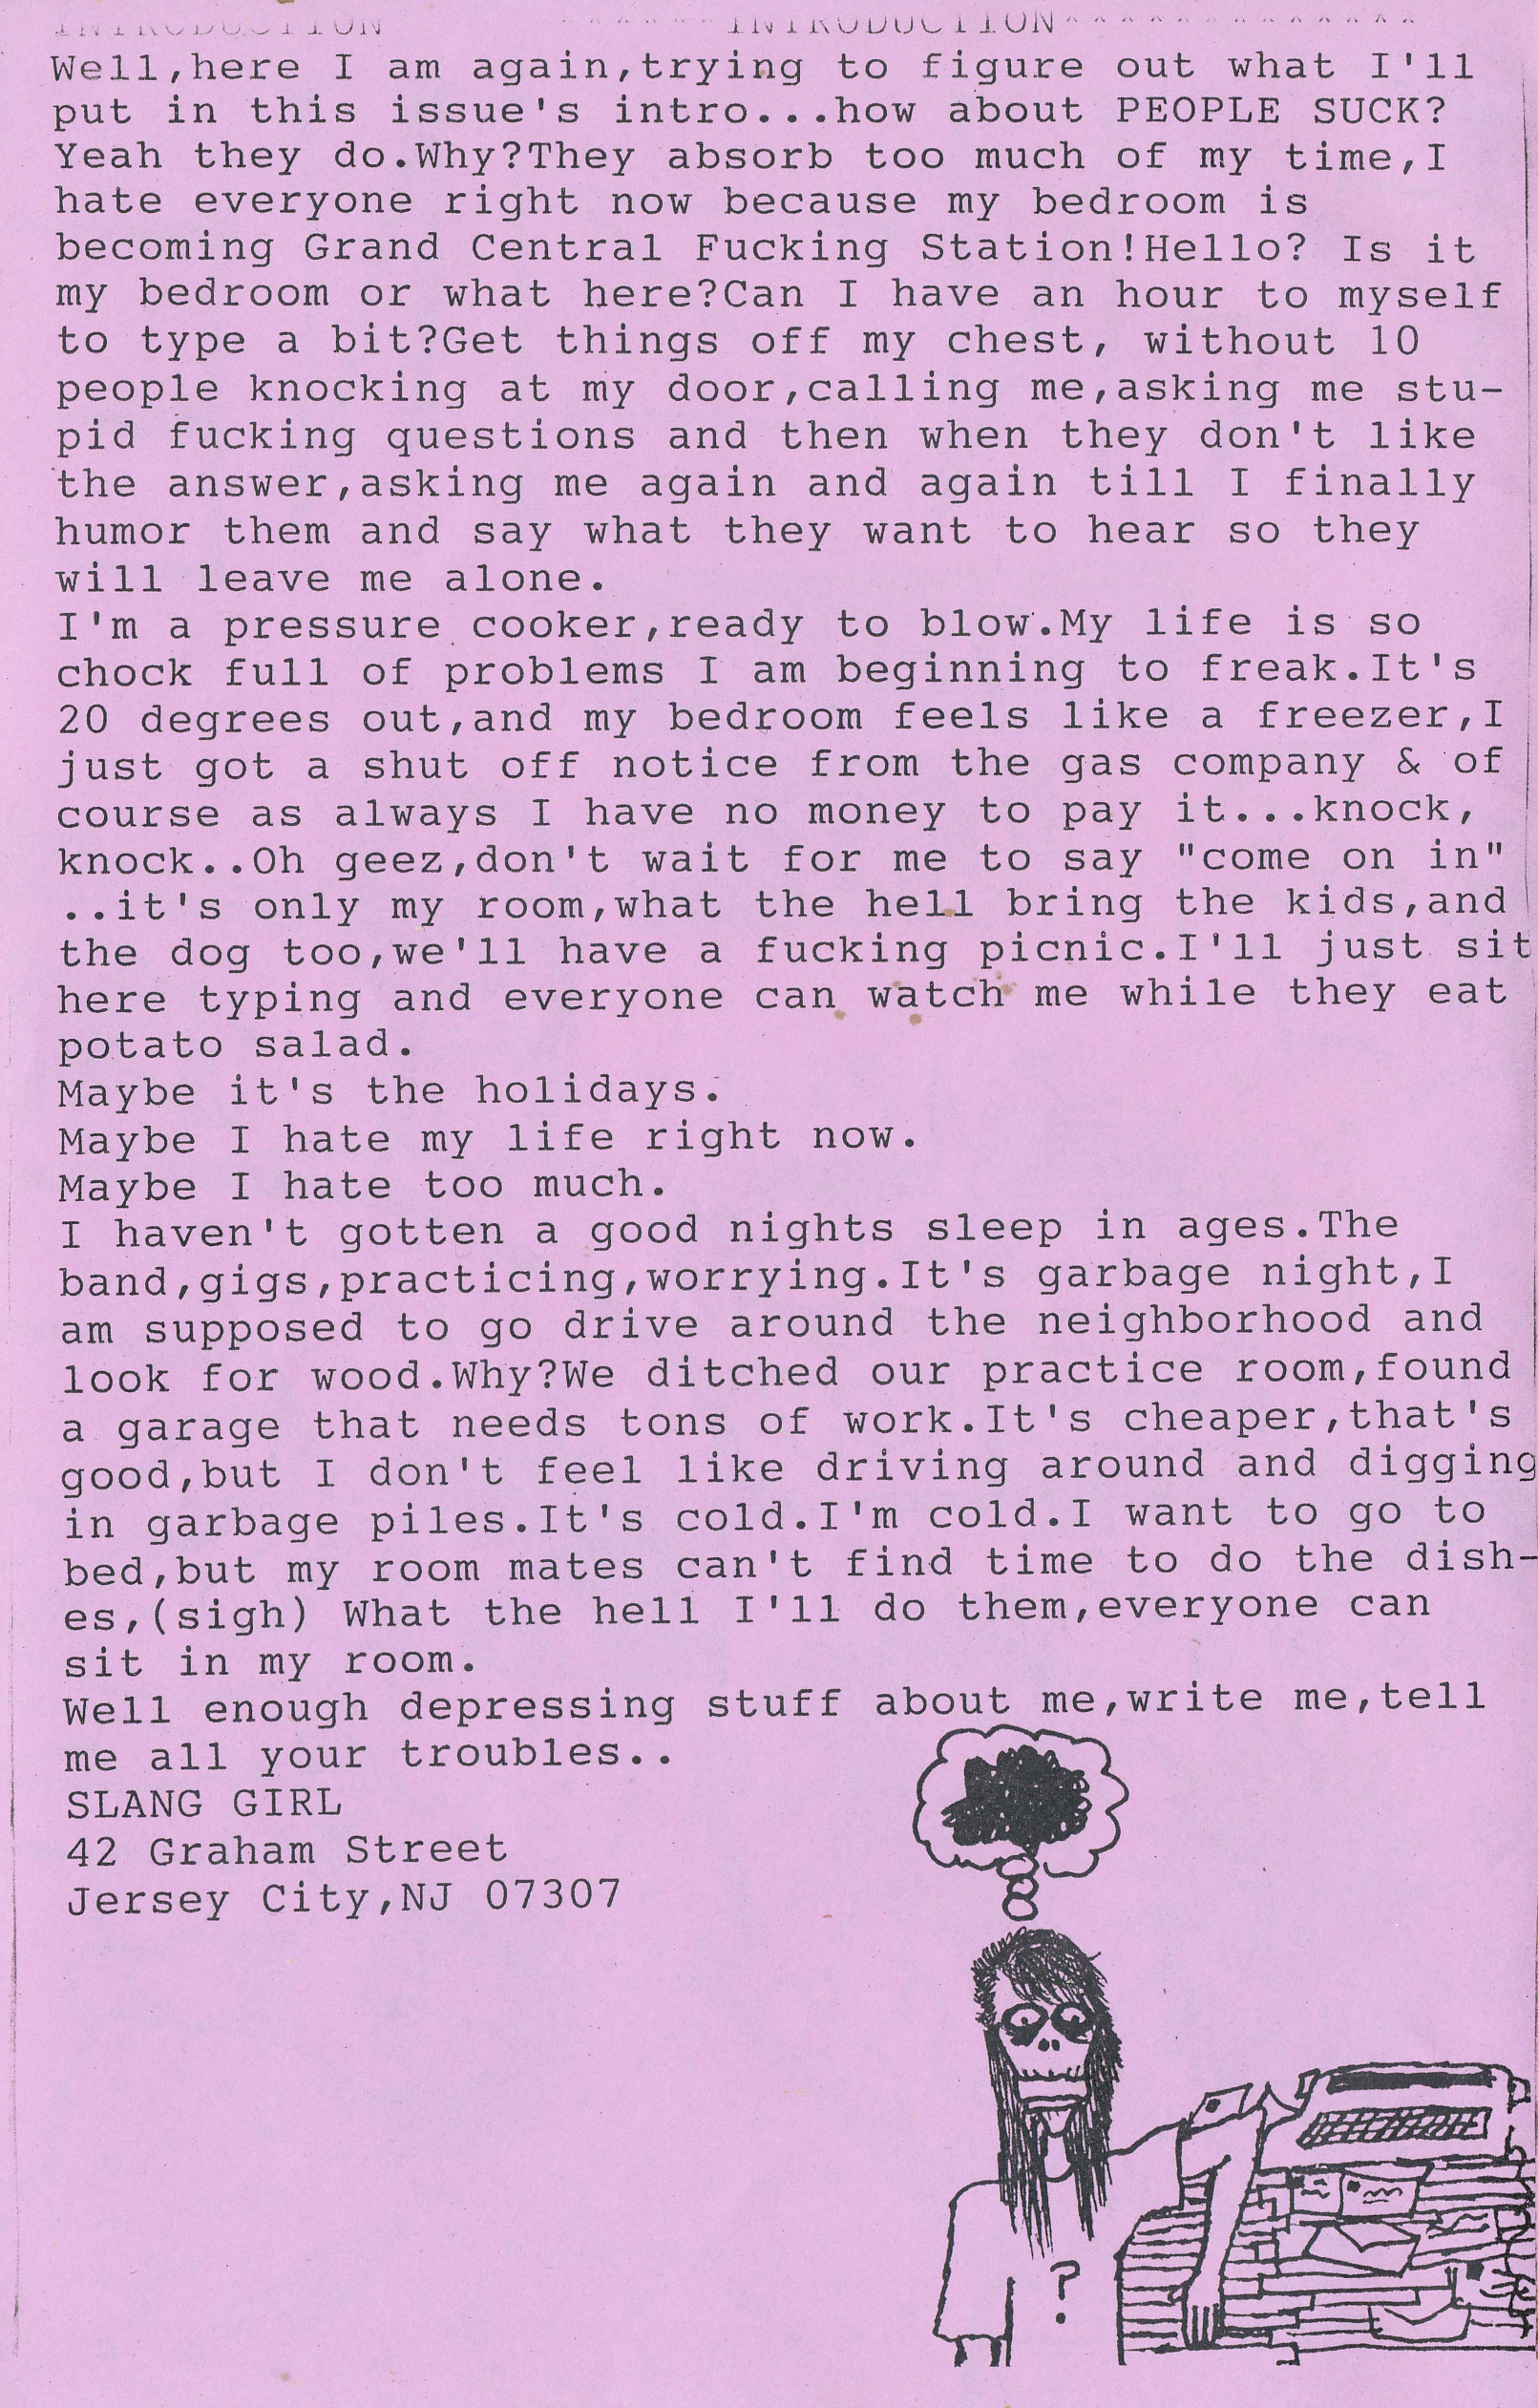 INTRODUCTION ******INTRODUCTION*************
Well,here I am again,trying to figure out what I'll
put in this issue's intro...how about PEOPLE SUCK?
Yeah they do.Why?They absorb too much of my time,I
hate everyone right now because my bedroom is
becoming Grand Central Fucking Station!Hello? Is it
my bedroom or what here?Can I have an hour to myself
to type a bit?Get things off my chest, without 10
people knocking at my door,calling me,asking me stu-
pid fucking questions and then when they don't like
the answer,asking me again and again till I finally
humor them and say what they want to hear so they
will leave me alone.
I'm a pressure cooker,ready to blow.My life is so
chock full of problems I am beginning to freak.It's
20 degrees out,and my bedroom feels like a freezer,I
just got a shut off notice from the gas company & of
course as always I have no money to pay it...knock,
knock..Oh geez,don't wait for me to say "come on in"
..it's only my room,what the hell bring the kids,and
the dog too,we'll have a fucking picnic.I'll just sit
here typing and everyone can watch me while they eat
potato salad.
Maybe it's the holidays.
Maybe I hate my life right now.
Maybe I hate too much.
I haven't gotten a good nights sleep in ages.The
band,gigs,practicing,worrying.It's garbage night,I
am supposed to go drive around the neighborhood and
look for wood.Why?We ditched our practice room,found
a garage that needs tons of work.It's cheaper,that's
good,but I don't feel like driving around and digging
in garbage piles.It's cold.I'm cold.I want to go to
bed,but my room mates can't find time to do the dish-
es,(sigh) What the hell I'll do them,everyone can
sit in my room.
Well enough depressing stuff about me,write me,tell
me all your troubles..
SLANG GIRL
42 Graham Street
Jersey City,NJ 07307
?